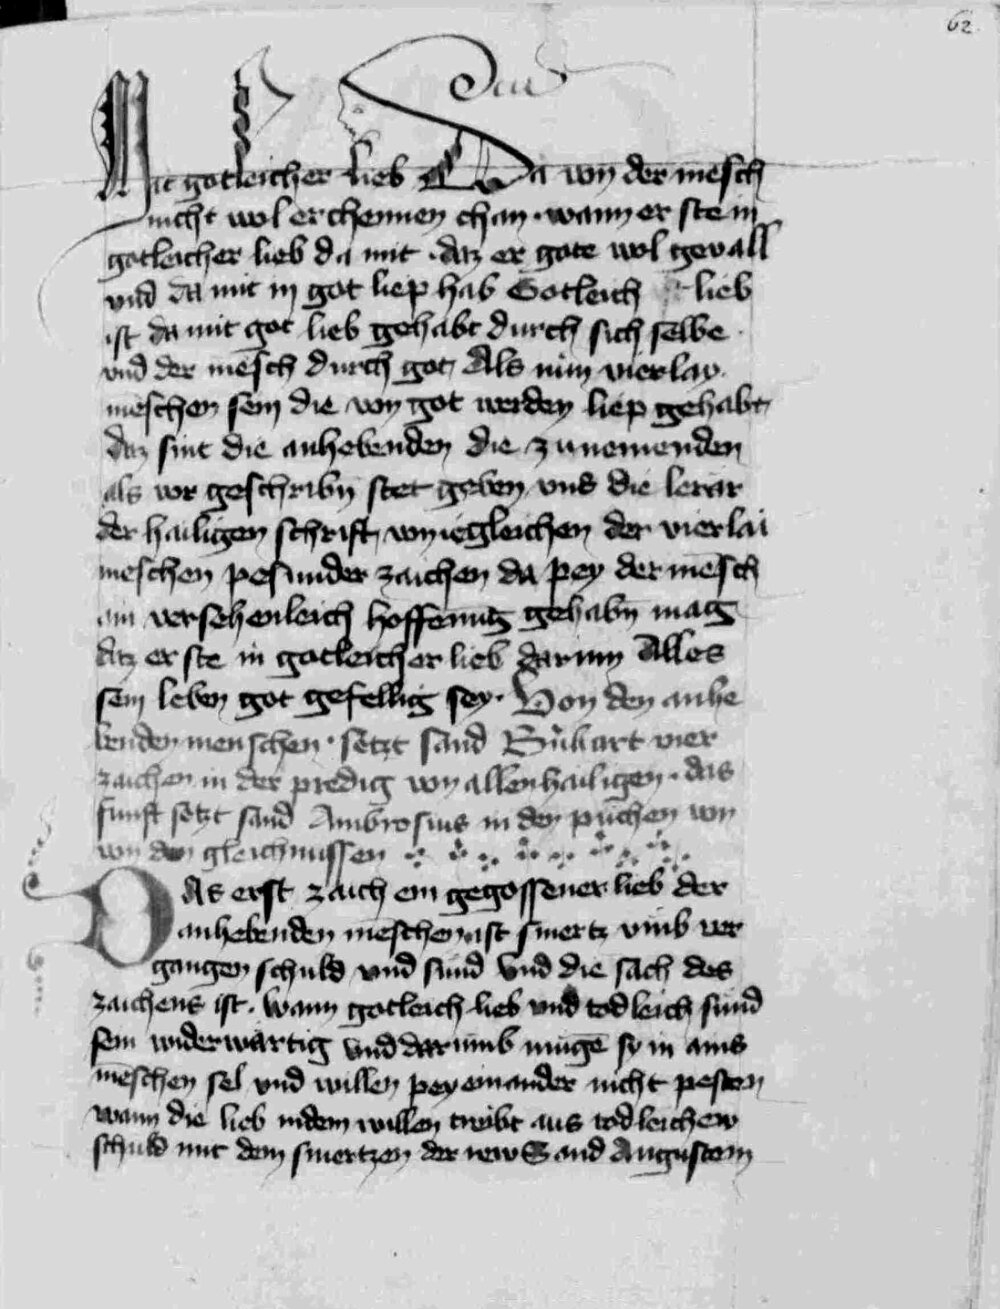 62
Mit gotleicher lieb Da von der mēsch
nicht wol erchennen chan · wann er ste in
gotleicher lieb da mit · daz er gote wol gevall
vnd da mit in got liep hab Gotleich lieb
ist da mit got lieb gehabt durch sich selbe ·
vnd der mēsch durch got Als nun vierlay
meschen sein die von got werden liep gehabt
daz sint die anhebenden die zunemenden
als vor geschribn stet geben vns die lerär
der hailigen schrift von iegleichen der vierlai
meschen pesunder zaichen da pey der mēsch
ain versehenleich hoffenung gehabn mag
daz er ste in gotleicher lieb darinn Alles
sein leben got gefellig sey · Von den anhe
benden menschen · setzt sand vier
zaichen in der predig von allen hailigen · das
funft setzt sand Ambrosius in den puchen von
von den gleichnussen
Das erst zaich ein gegossener lieb der
anhebenden meschen ist smertz vmb ver
gangen schuld vnd sund vnd die sach des
zaichens ist · wann gotleich lieb vnd todleich sund
sein widerwärtig vnd darumb mugē sy in ains
meschen sel vnd willen pey einander nicht pesten
wann die lieb in dem willen treibt aus todleichew
schuld mit dem smertzen der rew Sand Augustein